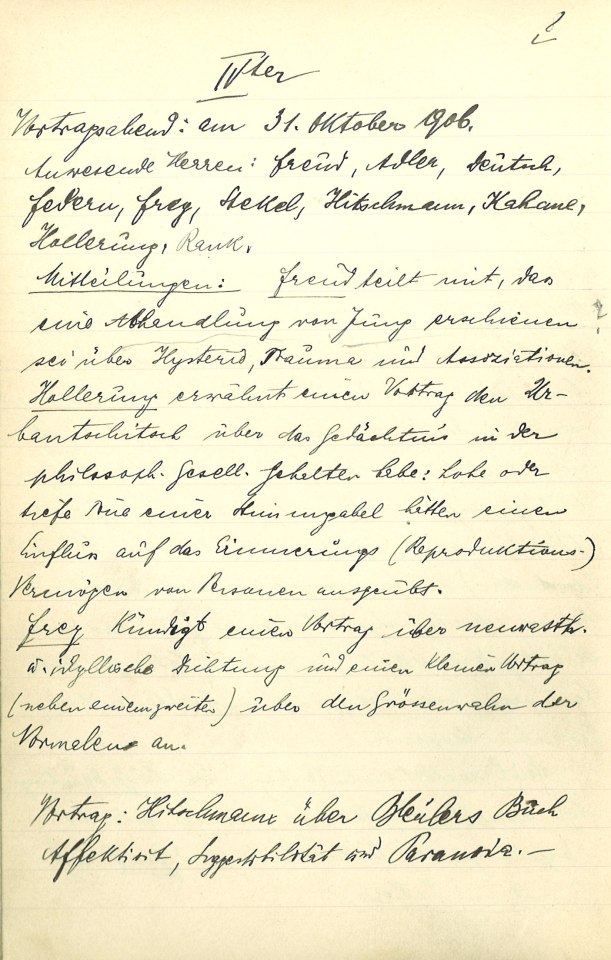 IVter
Vortragsabend: am 31. Oktober 1906.
Anwesende Herren: Freud, Adler, Deutsch,
Federn, Frey, Stekel, Hitschmann, Kahane,
Hollerung, Rank.
Mitteilungen: Freud teilt mit, das
eine Abhandlung von Jung erschienen ?
sei über Hysterie, Trauma und Assoziationen.
Hollerung erwähnt einen Vortrag den Ur-
bantschitsch über das Gedächtnis in der
philosoph. Gesell. gehalten habe: hohe oder
tiefe Töne einer Stimmgabel hätten einen
Einfluss auf das Erinnerungs (Reproduktions-)
Vermögen von Personen ausgeübt.
Frey kündigt einen Vortrag über neurasth.
u. idyllische Dichtung und einen kleinen Vortrag
(neben einem zweiten) über den Grössenwahn der
Normalen an.
Vortrag: Hitschmann über Bleulers Buch
Affektivit, Suggestibilität und Paranoia.—